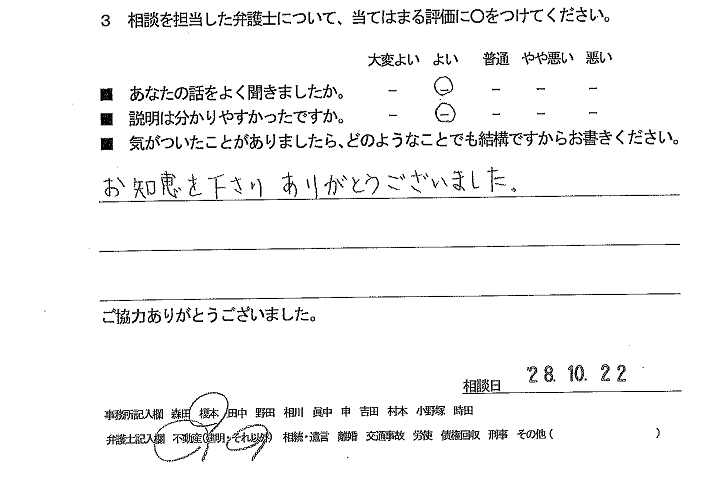 3 相談を担当した弁護士について、当てはまる評価に○をつけてください。
大変よい よい 普通 やや悪い 悪い
■ あなたの話をよく聞きましたか。 － － － － －
■ 説明は分かりやすかったですか。 － － － － －
■ 気がついたことがありましたら、どのようなことでも結構ですからお書きください。
お知恵を下さり ありがとうございました。
ご協力ありがとうございました。
相談日 '28.10.22
事務所記入欄 森田 榎本 田中 野田 相川 眞中 申 吉田 村木 小野塚 時田
弁護士記入欄 不動産(建明・それ以外) 相続・遺言 離婚 交通事故 労使 債権回収 刑事 その他( )